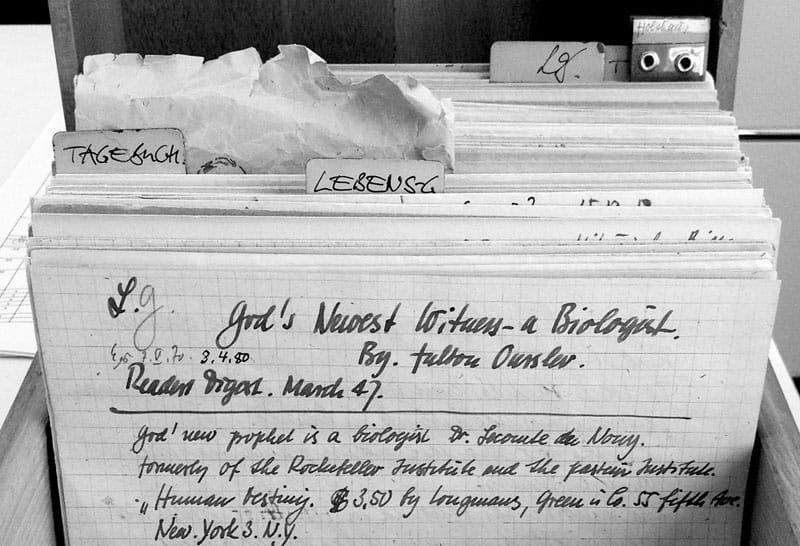 Lg.
TAGEBUCH.
LEBENS-G
L.g.
God's Newest Witness - a Biologist.
3.4.80 By. Fulton Oursler.
Readers Digest. March 47.
God' new prophet is a biologist Dr. Lecomte du Nouy.
formerly of the Rockefeller Institute and the Pasteur Institute.
„ Human Destiny. $ 3,50 by Longmans, Green & Co. 55 fifth Ave.
New. York 3. N.Y.